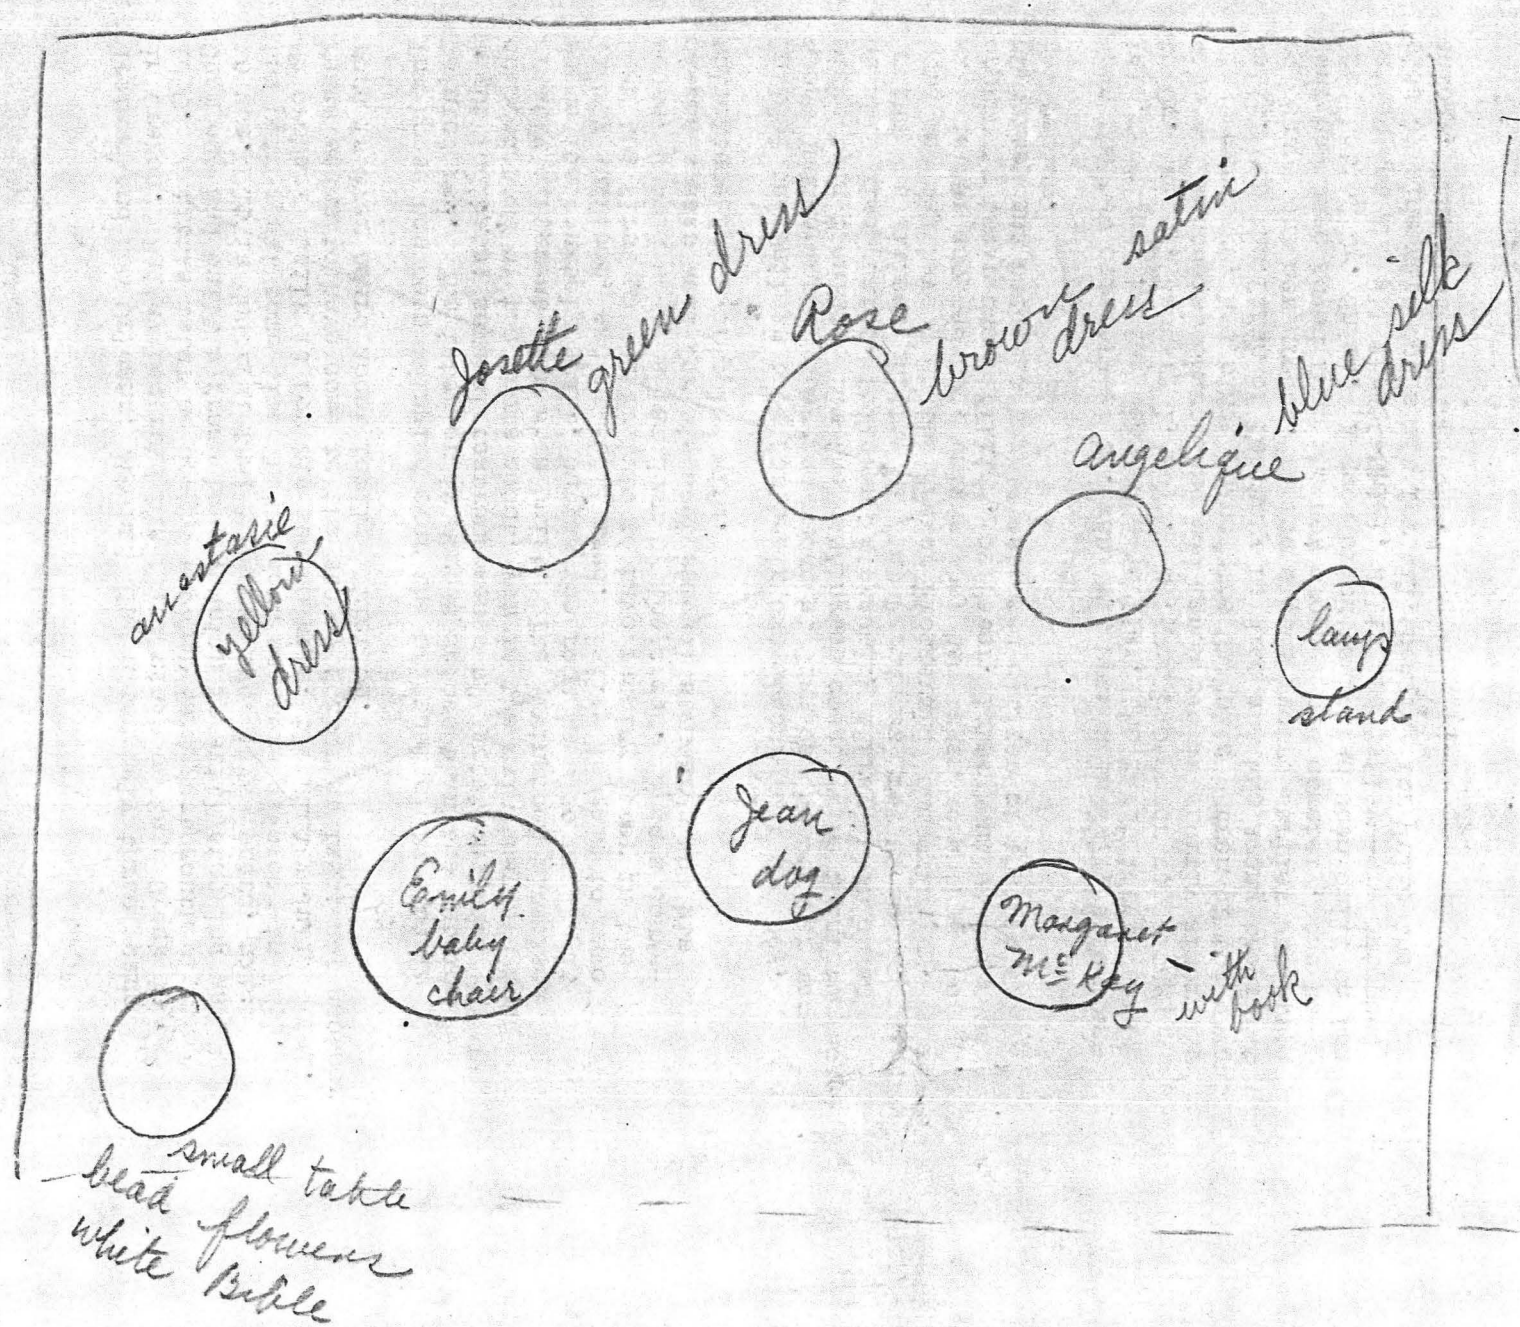 Josette
green dress
Rose
brown satin
dress
Angelique
blue silk
dress
Anastasie
yellow
dress
lamp
stand
Jean
dog
Emily
baby
chair
Margaret
McKay - with
book
small table
bead flowers
white Bible